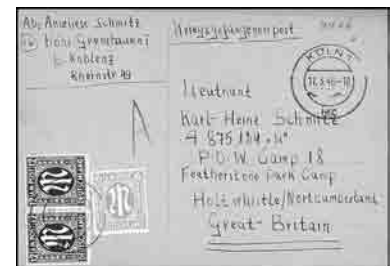 Abs. Anneliese Schmitz
b. Koblenz
Rheinstr.
Kriegsgefangenenpost
KÖLN 1
Lieutnant
Karl-Heinz Schmitz
P.O.W. Camp 18
Featherstone Park Camp
Holtwhistle/Nortcumberland
Great-Britain
A